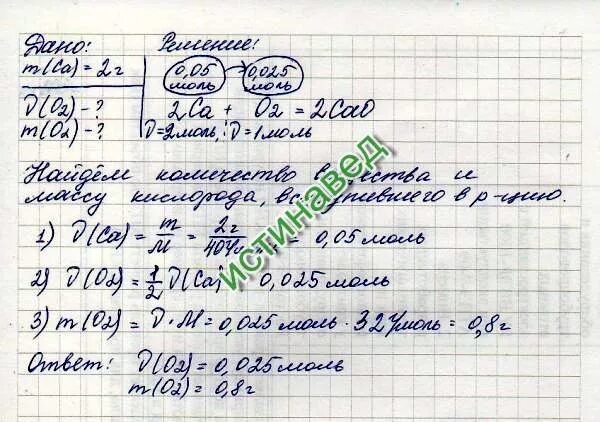 Дано:
m(Ca) = 2г
D(O2) - ?
m(O2) - ?
Решение:
0,05 моль → 0,025 моль
2Ca + O2 = 2CaO
D=2моль, D=1моль
Найдём количество и
массу кислорода, в р-цию.
1) D(Ca) = m/M = 2г/ = 0,05 моль
2) D(O2) = 1/2 D(Ca) 0,025 моль
3) m(O2) = D · M = 0,025 моль · 32г/моль = 0,8г
Ответ: D(O2) = 0,025 моль
m(O2) = 0,8г
ИСТИНАВЕД